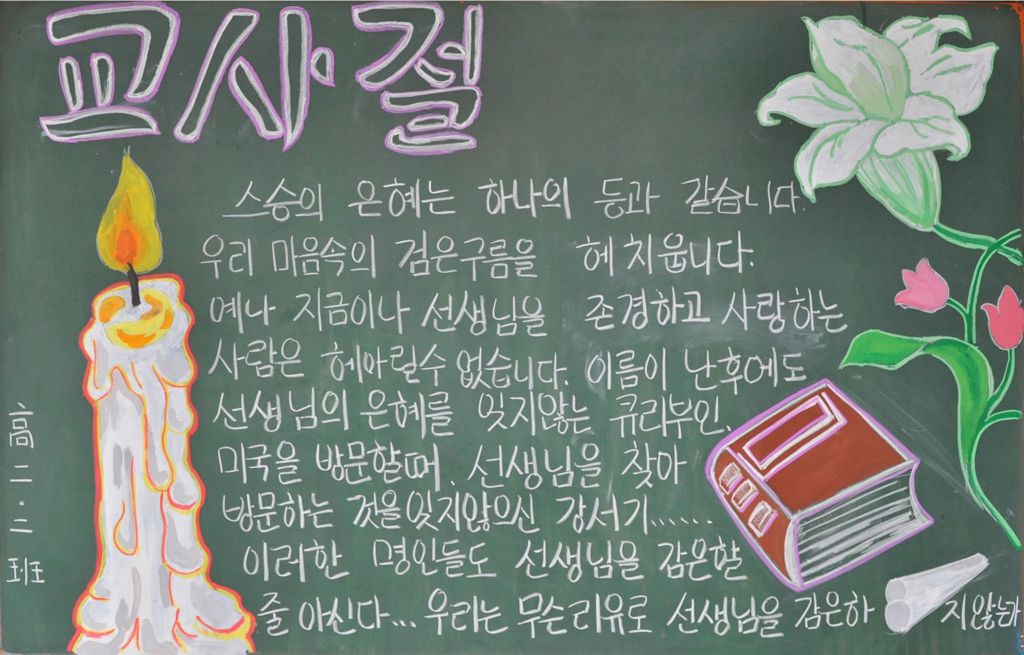 교사절
스승의 은혜는 하나의 등과 같습니다.
우리 마음속의 검은구름을 헤치웁니다.
예나 지금이나 선생님을 존경하고 사랑하는
사람은 헤아릴수 없습니다. 이름이 난후에도
선생님의 은혜를 잊지않는 큐리부인,
미국을 방문할때, 선생님을 찾아
방문하는 것을잊지않으신 강서기......
이러한 명인들도 선생님을 감은할
줄 아신다... 우리는 무슨리유로 선생님을 감은하지않는가
高二·二班